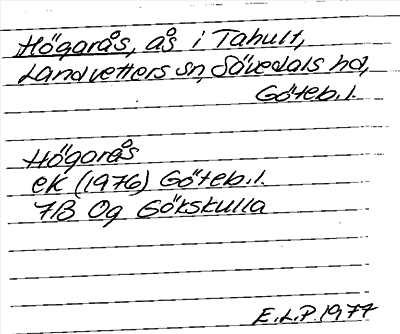 Högarås, ås i Tahult,
Landvetters sn, Sävedals hd,
Göteb.l.
Högarås
ek (1976) Göteb.l.
7B 0g Gökskulla
E.L.P. 1977